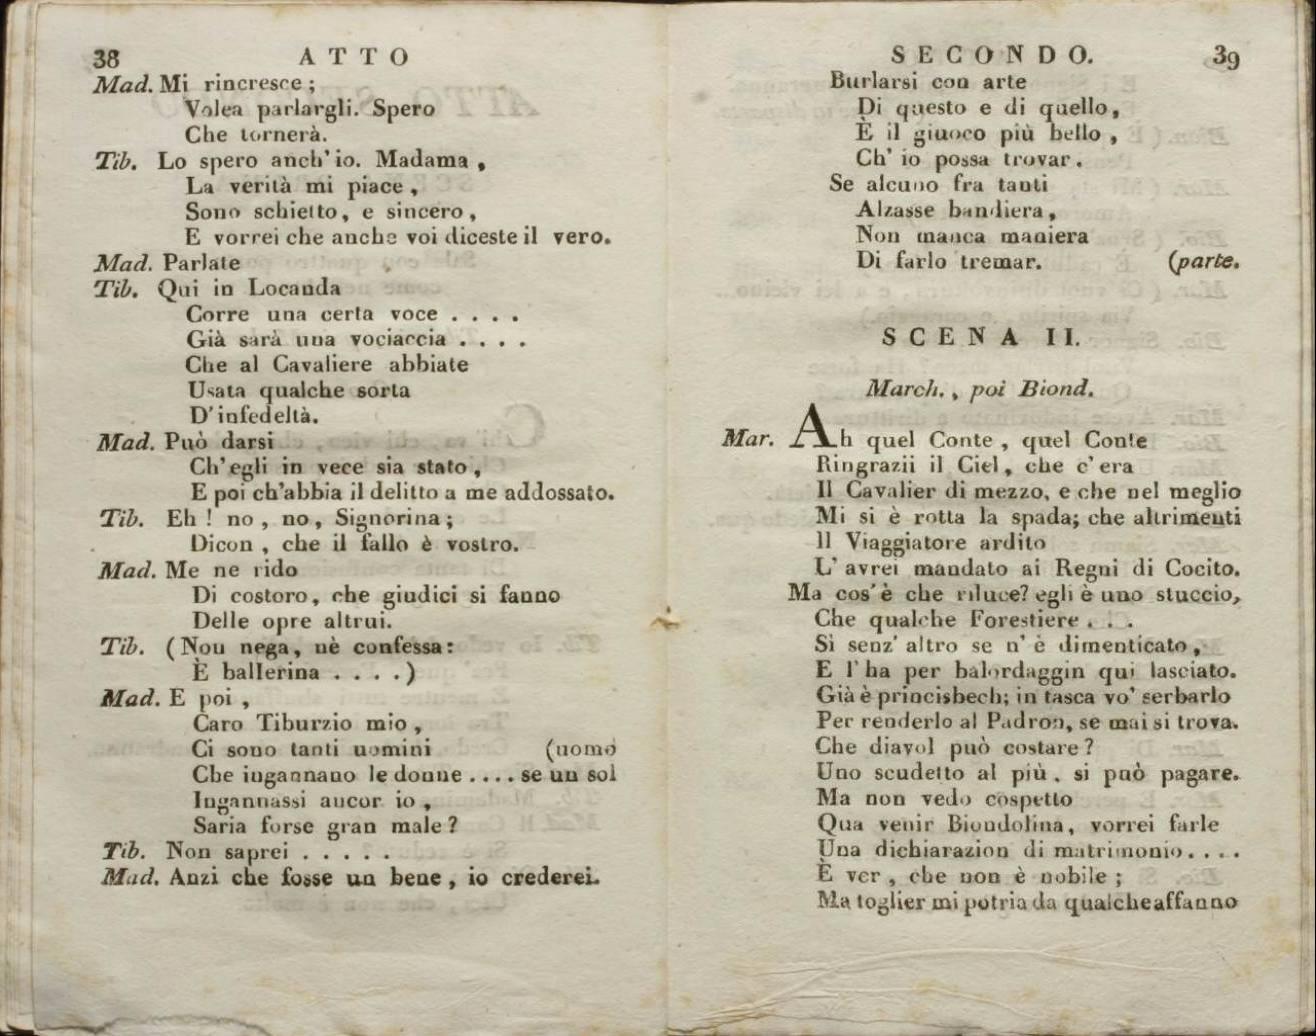 38 ATTO
Mad. Mi rincresce ;
Volea parlargli. Spero
Che tornerà.
Tib. Lo spero anch' io. Madama ,
La verità mi piace ,
Sono schietto, e sincero ,
E vorrei che anche voi diceste il vero.
Mad. Parlate
Tib. Qui in Locanda
Corre una certa voce . . . .
Già sarà una vociaccia . . . .
Che al Cavaliere abbiate
Usata qualche sorta
D' infedeltà.
Mad. Può darsi
Ch' egli in vece sia stato ,
E poi ch'abbia il delitto a me addossato.
Tib. Eh ! no , no , Signorina ;
Dicon , che il fallo è vostro.
Mad. Me ne rido
Di costoro, che giudici si fanno
Delle opre altrui.
Tib. ( Non nega, nè confessa :
È ballerina . . . . )
Mad. E poi ,
Caro Tiburzio mio ,
Ci sono tanti uomini (uomo
Che ingannano le donne . . . . se un sol
Ingannassi ancor io ,
Saria forse gran male ?
Tib. Non saprei . . . . .
Mad. Anzi che fosse un bene , io crederei.
SECONDO. 39
Burlarsi con arte
Di questo e di quello,
È il giuoco più bello ,
Ch' io possa trovar.
Se alcuno fra tanti
Alzasse bandiera,
Non manca maniera
Di farlo tremar. (parte.
SCENA II.
March. , poi Biond.
Mar. Ah quel Conte , quel Conte
Ringrazii il Ciel, che c' era
Il Cavalier di mezzo, e che nel meglio
Mi si è rotta la spada; che altrimenti
Il Viaggiatore ardito
L' avrei mandato ai Regni di Cocito.
Ma cos' è che riluce? egli è uno stuccio,
Che qualche Forestiere . . .
Sì senz' altro se n' è dimenticato ,
E l' ha per balordaggin qui lasciato.
Già è princisbech; in tasca vo' serbarlo
Per renderlo al Padron, se mai si trova.
Che diavol può costare ?
Uno scudetto al più , si può pagare.
Ma non vedo cospetto
Qua venir Biondolina, vorrei farle
Una dichiarazion di matrimonio . . . .
È ver , che non è nobile ;
Ma toglier mi potria da qualche affanno